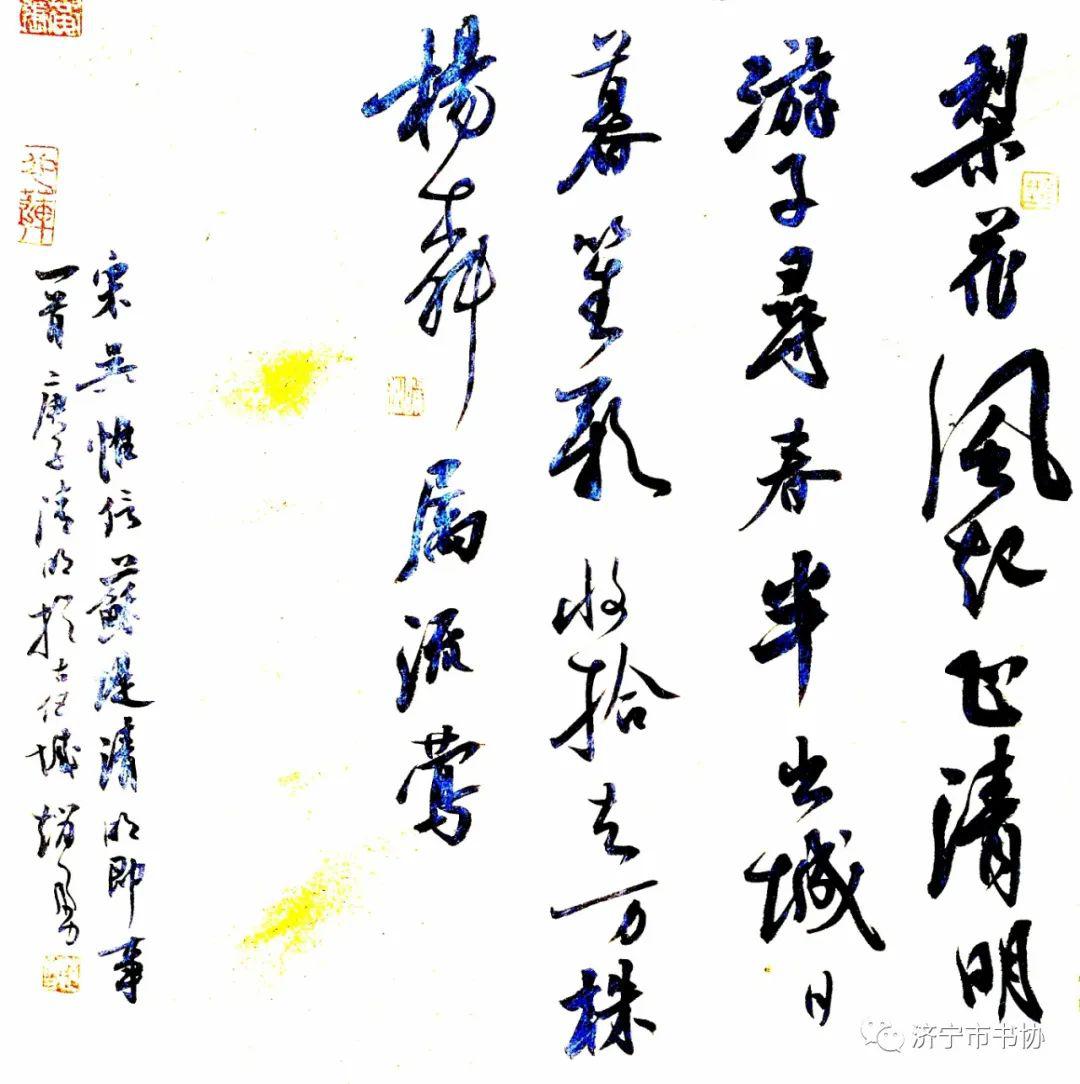 梨花風起正清明
游子尋春半出城日
暮笙歌收拾去万株
楊柳属流鶯
宋吴惟信蘇堤清明即事
一首庚子清明於古任城趙勇
济宁市书协